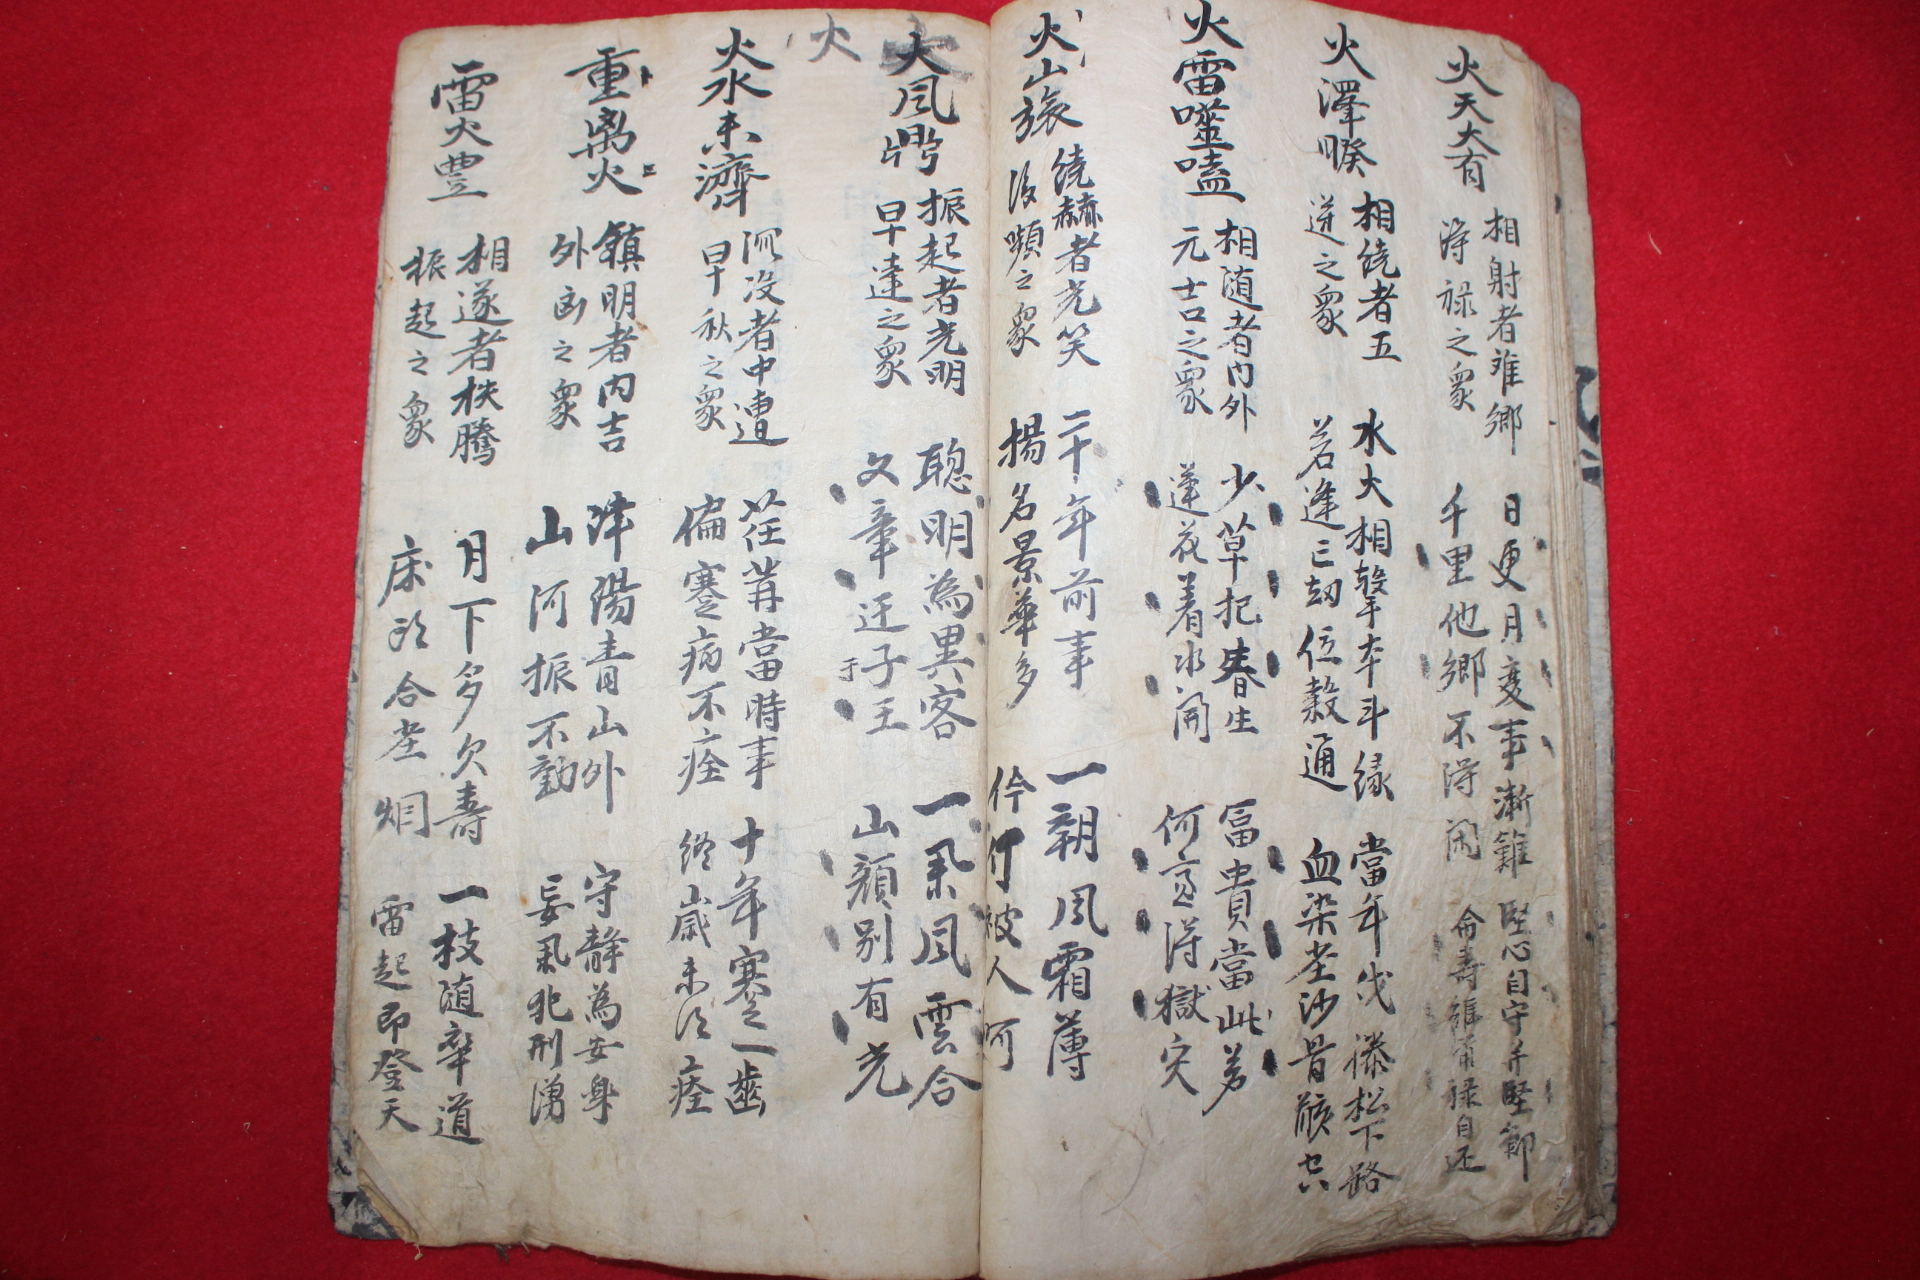 火天大有
相射者难鄉
得禄之象
日更月变事漸難
千里他鄉不得闲
堅心自守并堅節
命壽雖 禄自还
火澤睽
相繞者五
迸之象
水火相擊本斗緣
若逢亡劫位毅通
當年戊 滕松下路
血染 沙骨骸
火雷噬嗑
相随者内外
元吉之象
少草把春生
蓮花着水開
冨貴當此若
何意得獄灾
火山旅
繞赫者先笑
後嚬之象
二十年前事
揚名景華多
一朝風霜薄
伶仃被人呵
火風鼎
振起者光明
早達之象
聰明為異客
文章迋子王
于
一氣風雲合
山顔別有光
火
火水未濟
沉没者中連
早秋之象
荏苒當時事
偏蹇病不痊
十年蹇一齒
終歲未得痊
重离火
鎮明者内吉
外凶之象
洋陽青山外
山河振不動
守静為安身
妄氣犯刑湧
雷火豊
相遂者秩騰
振起之象
月下多欠壽
床 合 烟
一枝随率道
雷起即登天